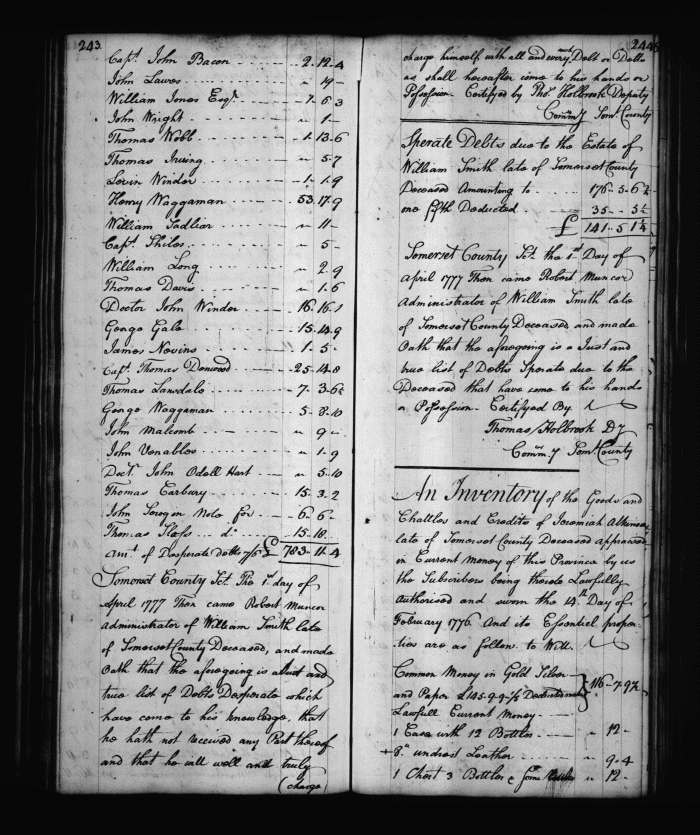 243.
Capt. John Bacon - - - - 2.12.4
John Lawes - - - - " 19 -
William Jones Esqr. - - - - 7. 6 3
John Wright - - - - " 1 -
Thomas Webb - - - - 1. 13. 6
Thomas Irving - - - - " 5.7
Levin Winder - - - - 1. 1. 9
Henry Waggaman - - - - 53. 17. 9
William Sadliar - - - - " 11
Capt. Shiles - - - - " 5 -
William Long - - - - " 2. 9
Thomas Davis - - - - " 1. 6
Doctor John Winder - - - - 16. 16. 1
George Gale - - - - 15. 14. 9
James Nevins - - - - 1. 5 -
Capt. Thomas Denwood - - - - 25. 14. 8
Thomas Lansdale - - - - 7. 3. 6½
George Waggaman - - - - 5. 8. 10
John Malcomb - - - - " 9 -
John Venables - - - - " 1. 9
Doct. John Odell Hart - - - - " 5. 10
Thomas Carbury - - - - 15. 3. 2
John Note for - - - - 6. 6 -
Thomas do. - - - - 15. 18.
Amt. of Desperate Debts 7/6 £ 783. 11. 4
Somerset County Sct. The 1st. day of
April 1777 Then came Robert Muncor
administrator of William Smith late
of Somerset County Deceased, and made
Oath that the aforegoing is a Just and
true list of Debts Desperate which
have come to his knowledge, that
he hath not received any Part thereof
and that he will well and truly
(charge)
244
charge himself with all and every such Debt or Debts
as shall hereafter come to his hands or
Possession. Certifyed by Thos. Holbrook Deputy
Commy Somt. County
Sperate Debts due to the Estate of
William Smith late of Somerset County
Deceased Amounting to - - - 176. 5. 6½
one fifth Deducted - - - 35 - - 5¼
£ 141. 5 1¼
Somerset County Sct. the 1st Day of
April 1777 Then came Robert Muncor
Administrator of William Smith late
of Somerset County Deceased and made
Oath that the aforegoing is a Just and
true list of Debts Sperate due to the
Deceased that have come to his hands
or Possession - Certifyed By.
Thomas Holbrook Dy
Commy Somt. County
An Inventory of the Goods and
Chattles and Credits of Jeremiah
late of Somerset County Deceased appraised
in Current Money of this Province by us
the Subscribers being thereto Lawfully
authorised and sworn the 14th Day of
February 1776 And its Essentiel proper
ties are as follow. to Witt.
Common Money in Gold Silver
and Paper £145.9.9½ Deducted
Lawfull Current Money - - 116. 7. 9¾
1 Case with 12 Bottles - - - " 12 -
8 lb undrest Leather - - - " 9. 4
1 Chest 3 Bottles & some " 12 -